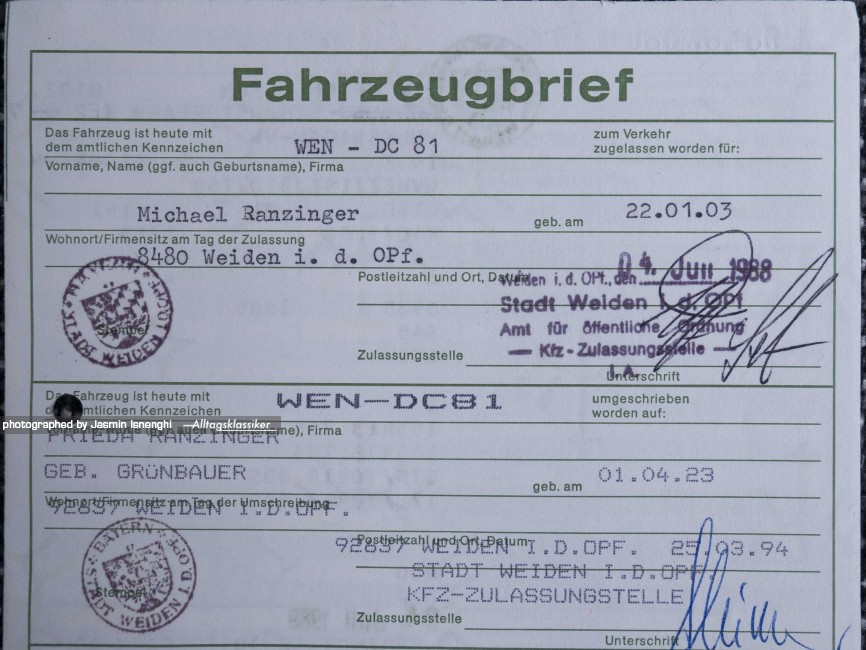 Fahrzeugbrief
Das Fahrzeug ist heute mit
dem amtlichen Kennzeichen WEN - DC 81
zum Verkehr
zugelassen worden für:
Vorname, Name (ggf. auch Geburtsname), Firma
Michael Ranzinger geb. am 22.01.03
Wohnort/Firmensitz am Tag der Zulassung
8480 Weiden i. d. OPf.
Postleitzahl und Ort, Datum
Weiden i. d. OPf., den 04. Juli 1988
Stadt Weiden i. d. OPf
Amt für öffentliche Ordnung
Stempel
Zulassungsstelle — Kfz-Zulassungsstelle —
I.A.
Unterschrift
Das Fahrzeug ist heute mit
dem amtlichen Kennzeichen WEN-DC81
umgeschrieben
worden auf:
photographed by Jasmin Isnenghi —Alltagsklassiker
name), Firma
FRIEDA RANZINGER
GEB. GRÜNBAUER geb. am 01.04.23
Wohnort/Firmensitz am Tag der Umschreibung
92637 WEIDEN I.D.OPF.
BAYERN
STADT WEIDEN I.D.OPF.
Stempel
Postleitzahl und Ort, Datum
92637 WEIDEN I.D.OPF. 25.03.94
STADT WEIDEN I.D.OPF.
KFZ-ZULASSUNGSTELLE
Zulassungsstelle
Unterschrift